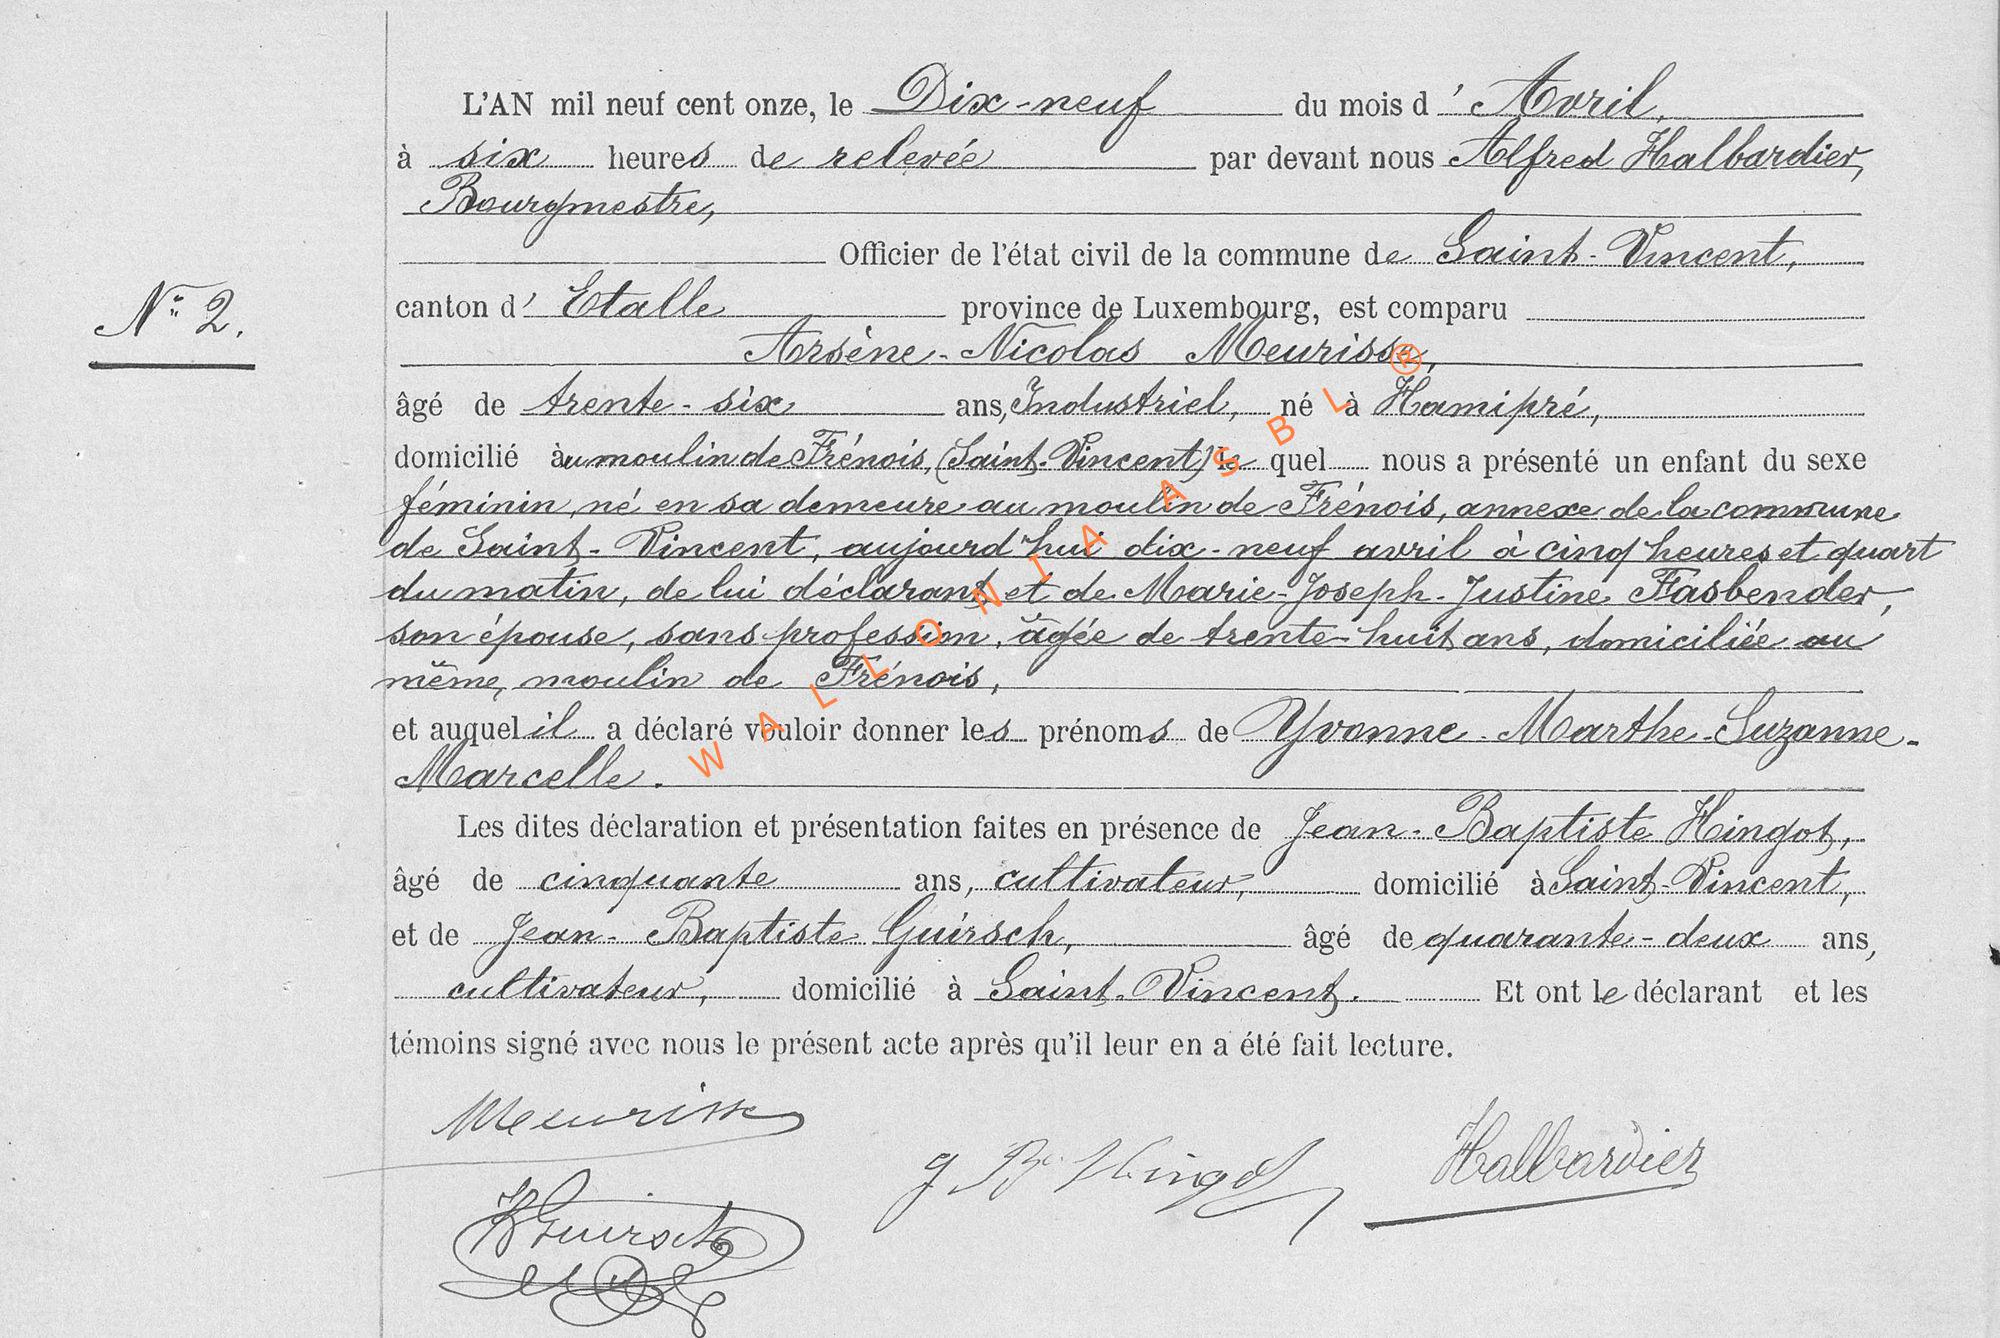 L'AN mil neuf cent onze, le Dix-neuf du mois d' Avril,
à six heures de relevée par devant nous Alfred Halbardier,
Bourgmestre,
Officier de l'état civil de la commune de Saint-Vincent,
N° 2.
canton d' Etalle province de Luxembourg, est comparu
Arsène-Nicolas Meurisse,
âgé de trente-six ans, Industriel, né à Hamipré,
domicilié au moulin de Frénois, (Saint-Vincent) lequel nous a présenté un enfant du sexe
féminin, né en sa demeure au moulin de Frénois, annexe de la commune
de Saint-Vincent, aujourd'hui dix-neuf avril à cinq heures et quart
du matin, de lui déclarant et de Marie-Joseph-Justine Fasbender,
son épouse, sans profession, âgée de trente-huit ans, domiciliée au
même moulin de Frénois,
et auquel il a déclaré vouloir donner les prénoms de Yvonne-Marthe-Suzanne-
Marcelle.
Les dites déclaration et présentation faites en présence de Jean-Baptiste Hingot,
âgé de cinquante ans, cultivateur, domicilié à Saint-Vincent,
et de Jean-Baptiste Guirsch, âgé de quarante-deux ans,
cultivateur, domicilié à Saint-Vincent. Et ont le déclarant et les
témoins signé avec nous le présent acte après qu'il leur en a été fait lecture.
Meurisse
J Bte Hingot
Halbardier
JBGuirsch
WALLONIA ASBL®